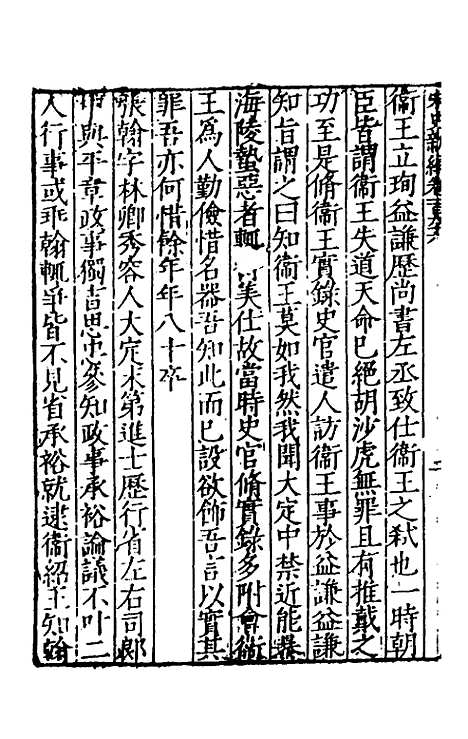 宋史新編卷一百
衞王立珣益謙歷尚書左丞致仕衞王之弒也一時朝
臣皆謂衞王失道天命已絕胡沙虎無罪且有推戴之
功至是脩衞王實錄史官遣人訪衞王事於益謙益謙
知旨謂之曰知衞王莫如我然我聞大定中禁近能暴
海陵蟄惡者輒 美仕故當時史官脩實錄多附會衞
王爲人勤儉惜名器吾知此而已設欲飾吾言以實其
罪吾亦何惜餘年年八十卒
張翰字林卿秀容人大定末第進士歷行省左右司郎
中與平章政事獨吉思忠參知政事承裕論議不叶二
人行事或乖翰輒爭皆不見省承裕就逮衞紹王知翰